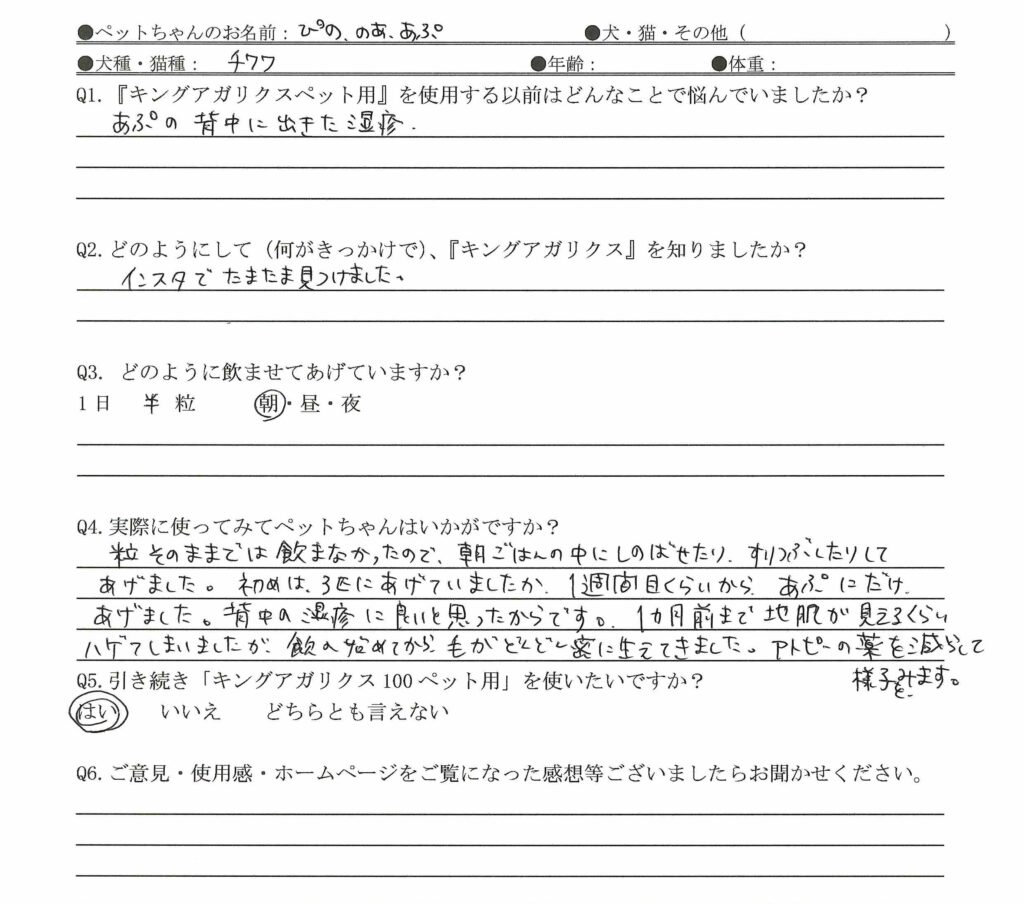 ●ペットちゃんのお名前：ぴの、のあ、あぷ ●犬・猫・その他（ ）
●犬種・猫種： チワワ ●年齢： ●体重：
Q1.『キングアガリクスペット用』を使用する以前はどんなことで悩んでいましたか？
あぷの背中に出きた湿疹.
Q2.どのようにして（何がきっかけで）、『キングアガリクス』を知りましたか？
インスタでたまたま見つけました。
Q3. どのように飲ませてあげていますか？
1日 半 粒 朝・昼・夜
Q4.実際に使ってみてペットちゃんはいかがですか？
粒そのままでは飲まなかったので、朝ごはんの中にしのばせたり、すりつぶしたりして
あげました。初めは、3匹にあげていましたが、1週間目くらいから、あぷにだけ、
あげました。背中の湿疹に良いと思ったからです。1カ月前まで地肌が見えるくらい
ハゲてしまいましたが、飲み始めてから毛がどんどん密に生えてきました。アトピーの薬を減らして
様子をみます。
Q5.引き続き「キングアガリクス100ペット用」を使いたいですか？
はい いいえ どちらとも言えない
Q6.ご意見・使用感・ホームページをご覧になった感想等ございましたらお聞かせください。